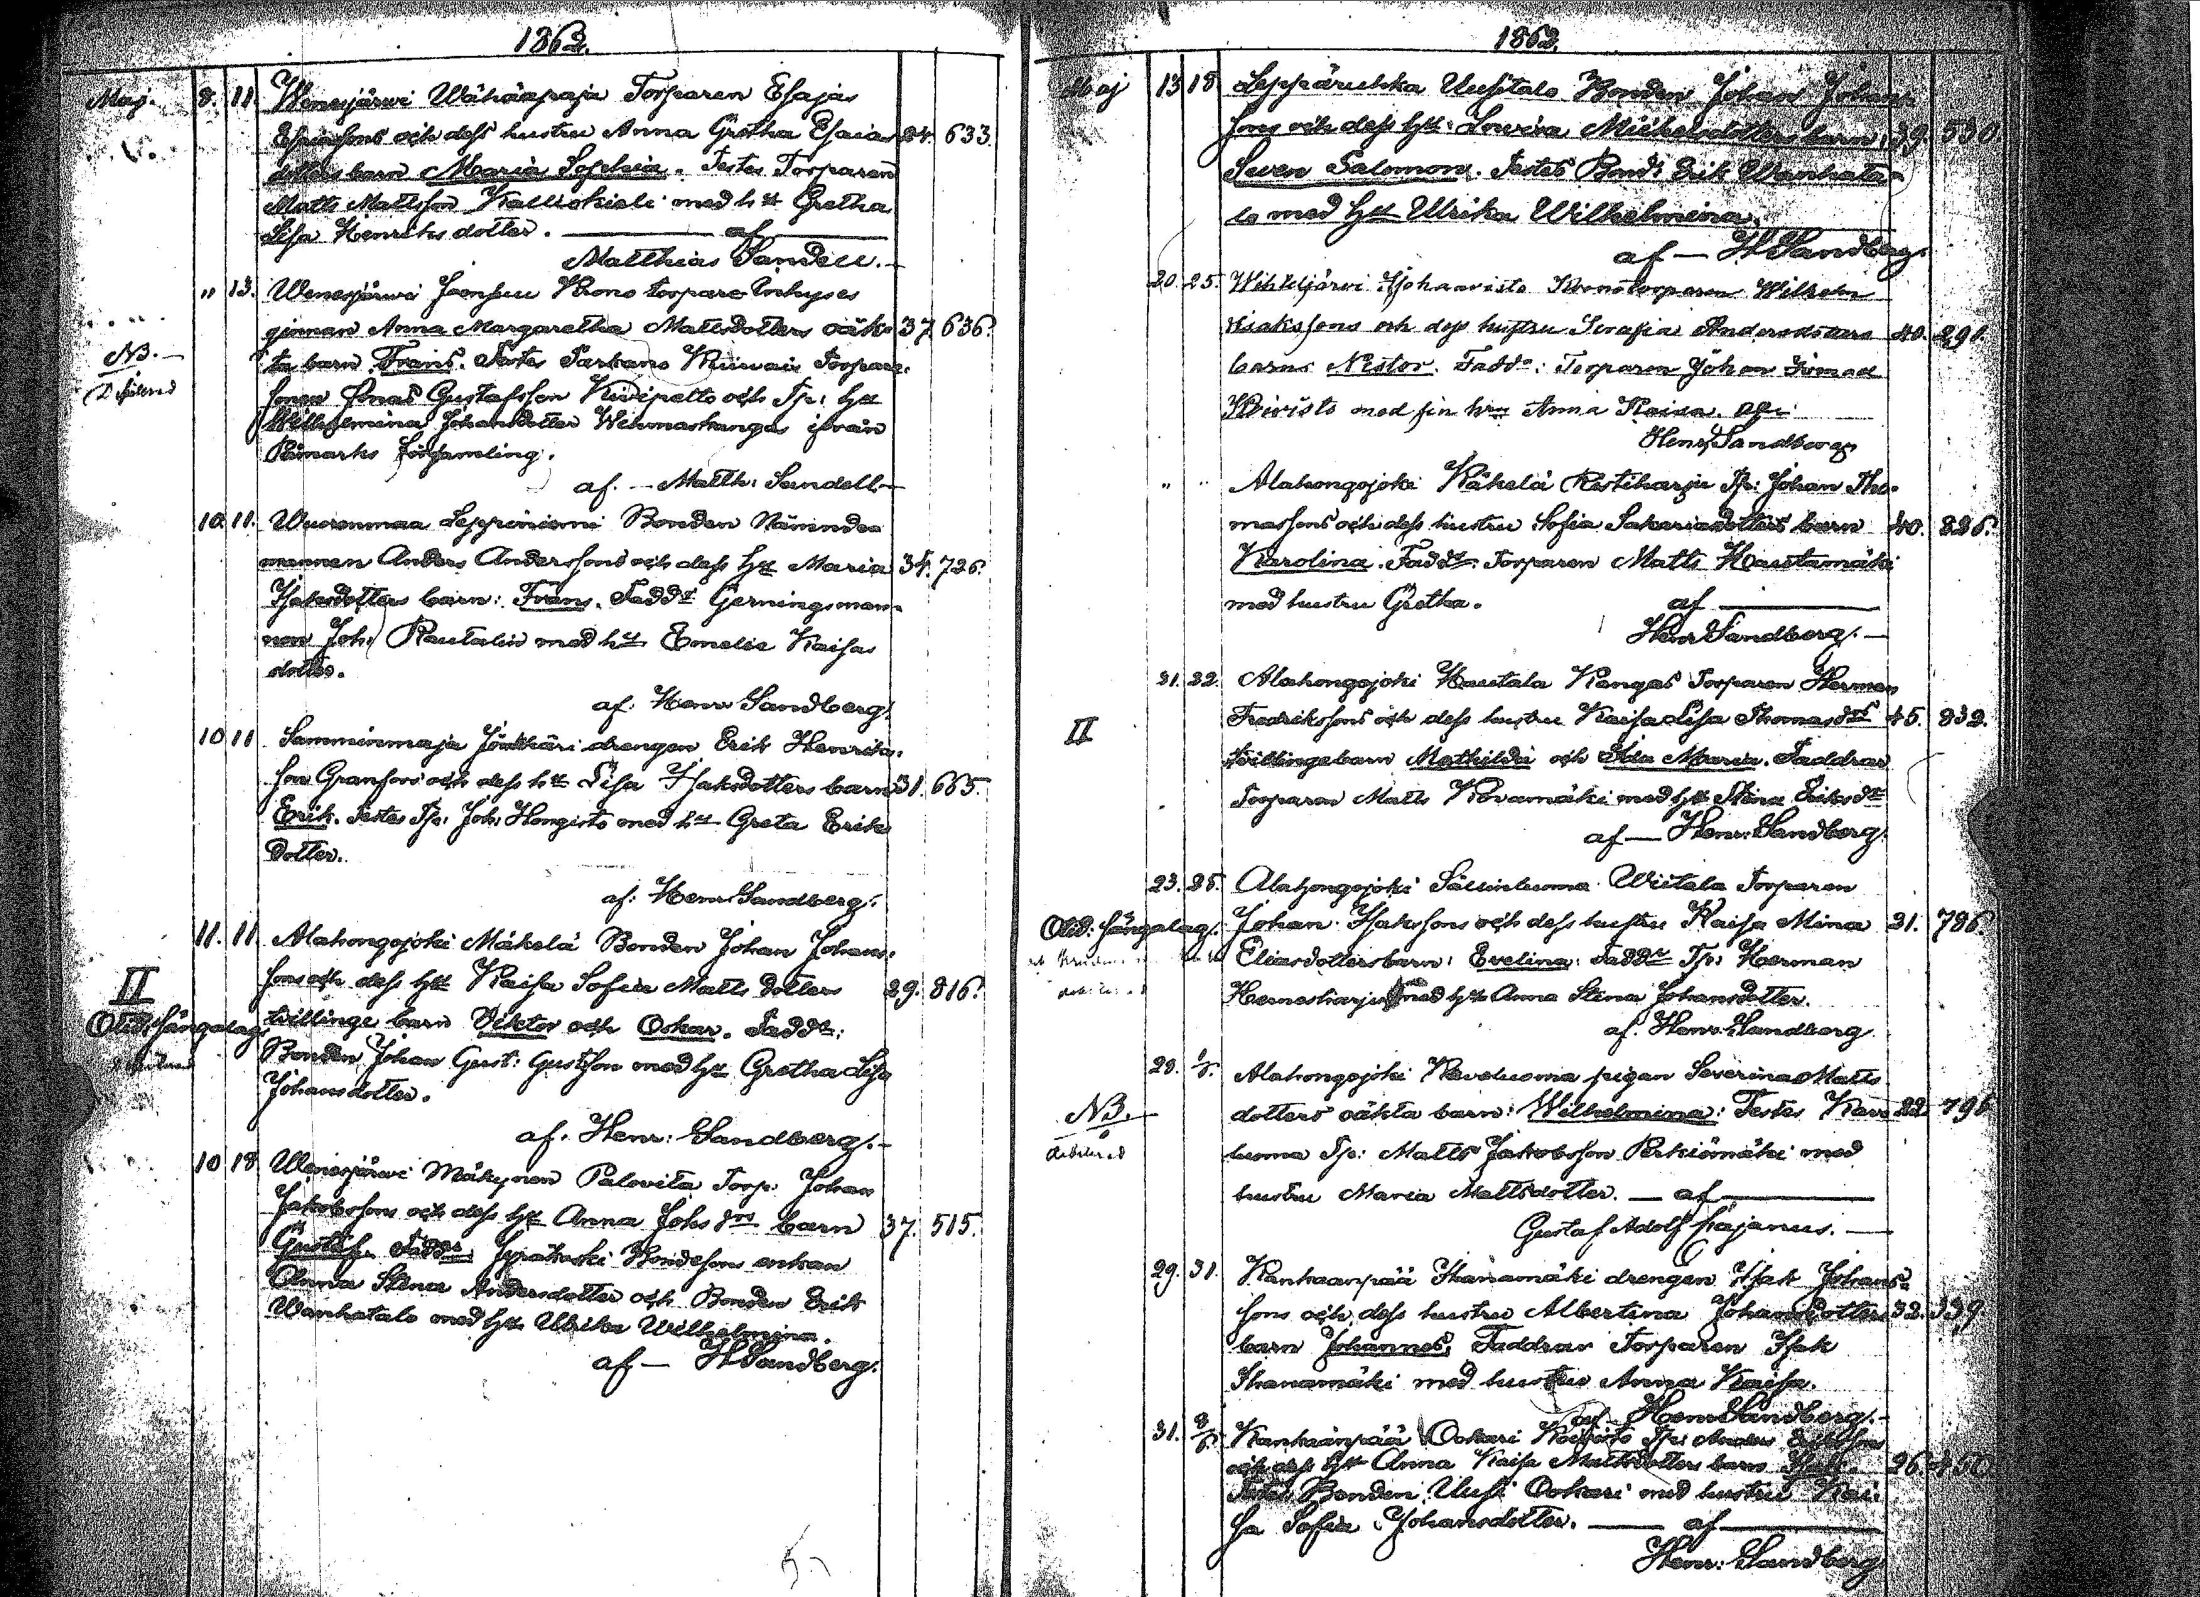 1862.
Maj. 8. 11. Wenesjärwi Wähäapaja Torparen Esajas
Esaiasons och dess hustru Anna Gretha Esaias 24. 633.
dotters barn Maria Sophia. Testes Torparen
Matts Mattsson Kalliokieli med h:u Gretha
Lisa Henriksdotter. — af —
Matthias Sandell.
" 13. Wenesjärwi Joensuu Krono torpare Inhyses
qvinnan Anna Margaretha Mattsdotters oäk- 37. 636.
NB. ta barn Frans. Testes Torpare
sonen Jonas Gustafsson Kivipelto och Tp: h:u
Wilhelmina Johansdotter Wehmaskangas ifrån
Påmarks församling.
af. — Matth: Sandell.—
10. 11. Wuorenmaa Leppiniemi Bonden Nämnde
mannen Anders Anderssons och dess h:u Maria 34. 726.
Isaksdotters barn: Frans. Fadd:r Gerningsman-
nen Joh: Rautalin med h:u Emelie Kaisas
dotter.
af: Henr: Sandberg.
10 11 Samminmaja Jönkkäri drengen Erik Henriks-
son Granfors och dess h:u Lisa Isaksdotters barn 31. 665.
Erik. Testes Tp: Joh: Hongisto med h:u Greta Eriks
dotter.
af: Henr: Sandberg.
11. 11. Alahongojoki Mäkelä Bonden Johan Johans-
II sons och dess h:u Kaisa Sofia Matts dotters 29. 816.
Olid: sängalag tvillinge barn Viktor och Oskar. Fadd:r:
Bonden Johan Gust: Gustfson med h:u Gretha Lisa
Johansdotter.
af. Henr: Sandberg.—
10 18. Wenesjärwi Mäkynen Paloviita Torp: Johan
Jakobssons och dess h:u Anna Johs d:rs barn 37. 515.
Gustaf. Fadd:r: Bondesons enkan
Anna Stina Andersdotter och Bonden Erik
Wanhatalo med h:u Ulrika Wilhelmina.
af — H Sandberg.
1862.
Maj 13 18 Leppäruhka Uusitalo Bonden Johan Johans-
sons och dess h:u: Lovisa Mickelsdotters barn: 39. 530.
Seven Salomon. Testes Bond: Erik Wanhata-
lo med h:u Ulrika Wilhelmina.
af — H Sandberg.
20. 25. Wihteljärvi Kronotorparen Wilhelm
Isakssons och dess hustru Serafia Andersdotters 40. 291.
barns Nestor. Fadd:r: Torparen Johan
Koivisto med sin h:u Anna Kaisa. af:
Henr: Sandberg
" " Alahongojoki Käkelä Ristiharju Tp: Johan Tho-
massons och dess hustru Sofia Sakariasdotters barn 40. 826.
Karolina. Fadd:r: Torparen Matts Hautamäki
med hustru Gretha. af —
Henr: Sandberg.—
21. 22. Alahongojoki Hautala Kangas Torparen Herman
II Fredrikssons och dess hustru Kaisa Lisa Thomasd:rs 45. 832.
tvillingebarn Mathilda och Ida Maria. Faddrar
Torparen Matts Kovamäki med h:u Stina Eriksd:r
af — Henr: Sandberg.
23. 25. Alahongojoki Sällinluoma Wiitala Torparen
Olid: sängalag. Johan Isakssons och dess hustru Kaisa Mina 31. 786.
Eliasdotters barn: Evelina: Fadd:r Tp: Herman
Hernesharju med h:u Anna Stina Johansdotter.
af. Henr: Sandberg
28. 1/6. Alahongojoki Kaveluoma pigan Severina Matts
NB. dotters oäkta barn: Wilhelmina: Testes Kave 22. 796.
debiterad luoma Tp: Matts Jakobsson Perkiömäki med
hustru Maria Mattsdotter. — af —
Gustaf Adolf Cajanus. —
29. 31. Kankaanpää Ihanamäki drengen Isak Johans-
sons och dess hustru Albertina Johansdotters 32. 339.
barn Johannes. Faddrar Torparen Isak
Ihanamäki med hustru Anna Kaisa.
af Henr: Sandberg.—
31. 8/6. Kankaanpää Ookari Koivisto Tp: Anders
och dess h:u Anna Kaisa Mattsdotters barn 26. 450.
Testes Bonden Uusi Ookari med hustru Kai-
sa Sofia Johansdotter. — af —
Henr: Sandberg